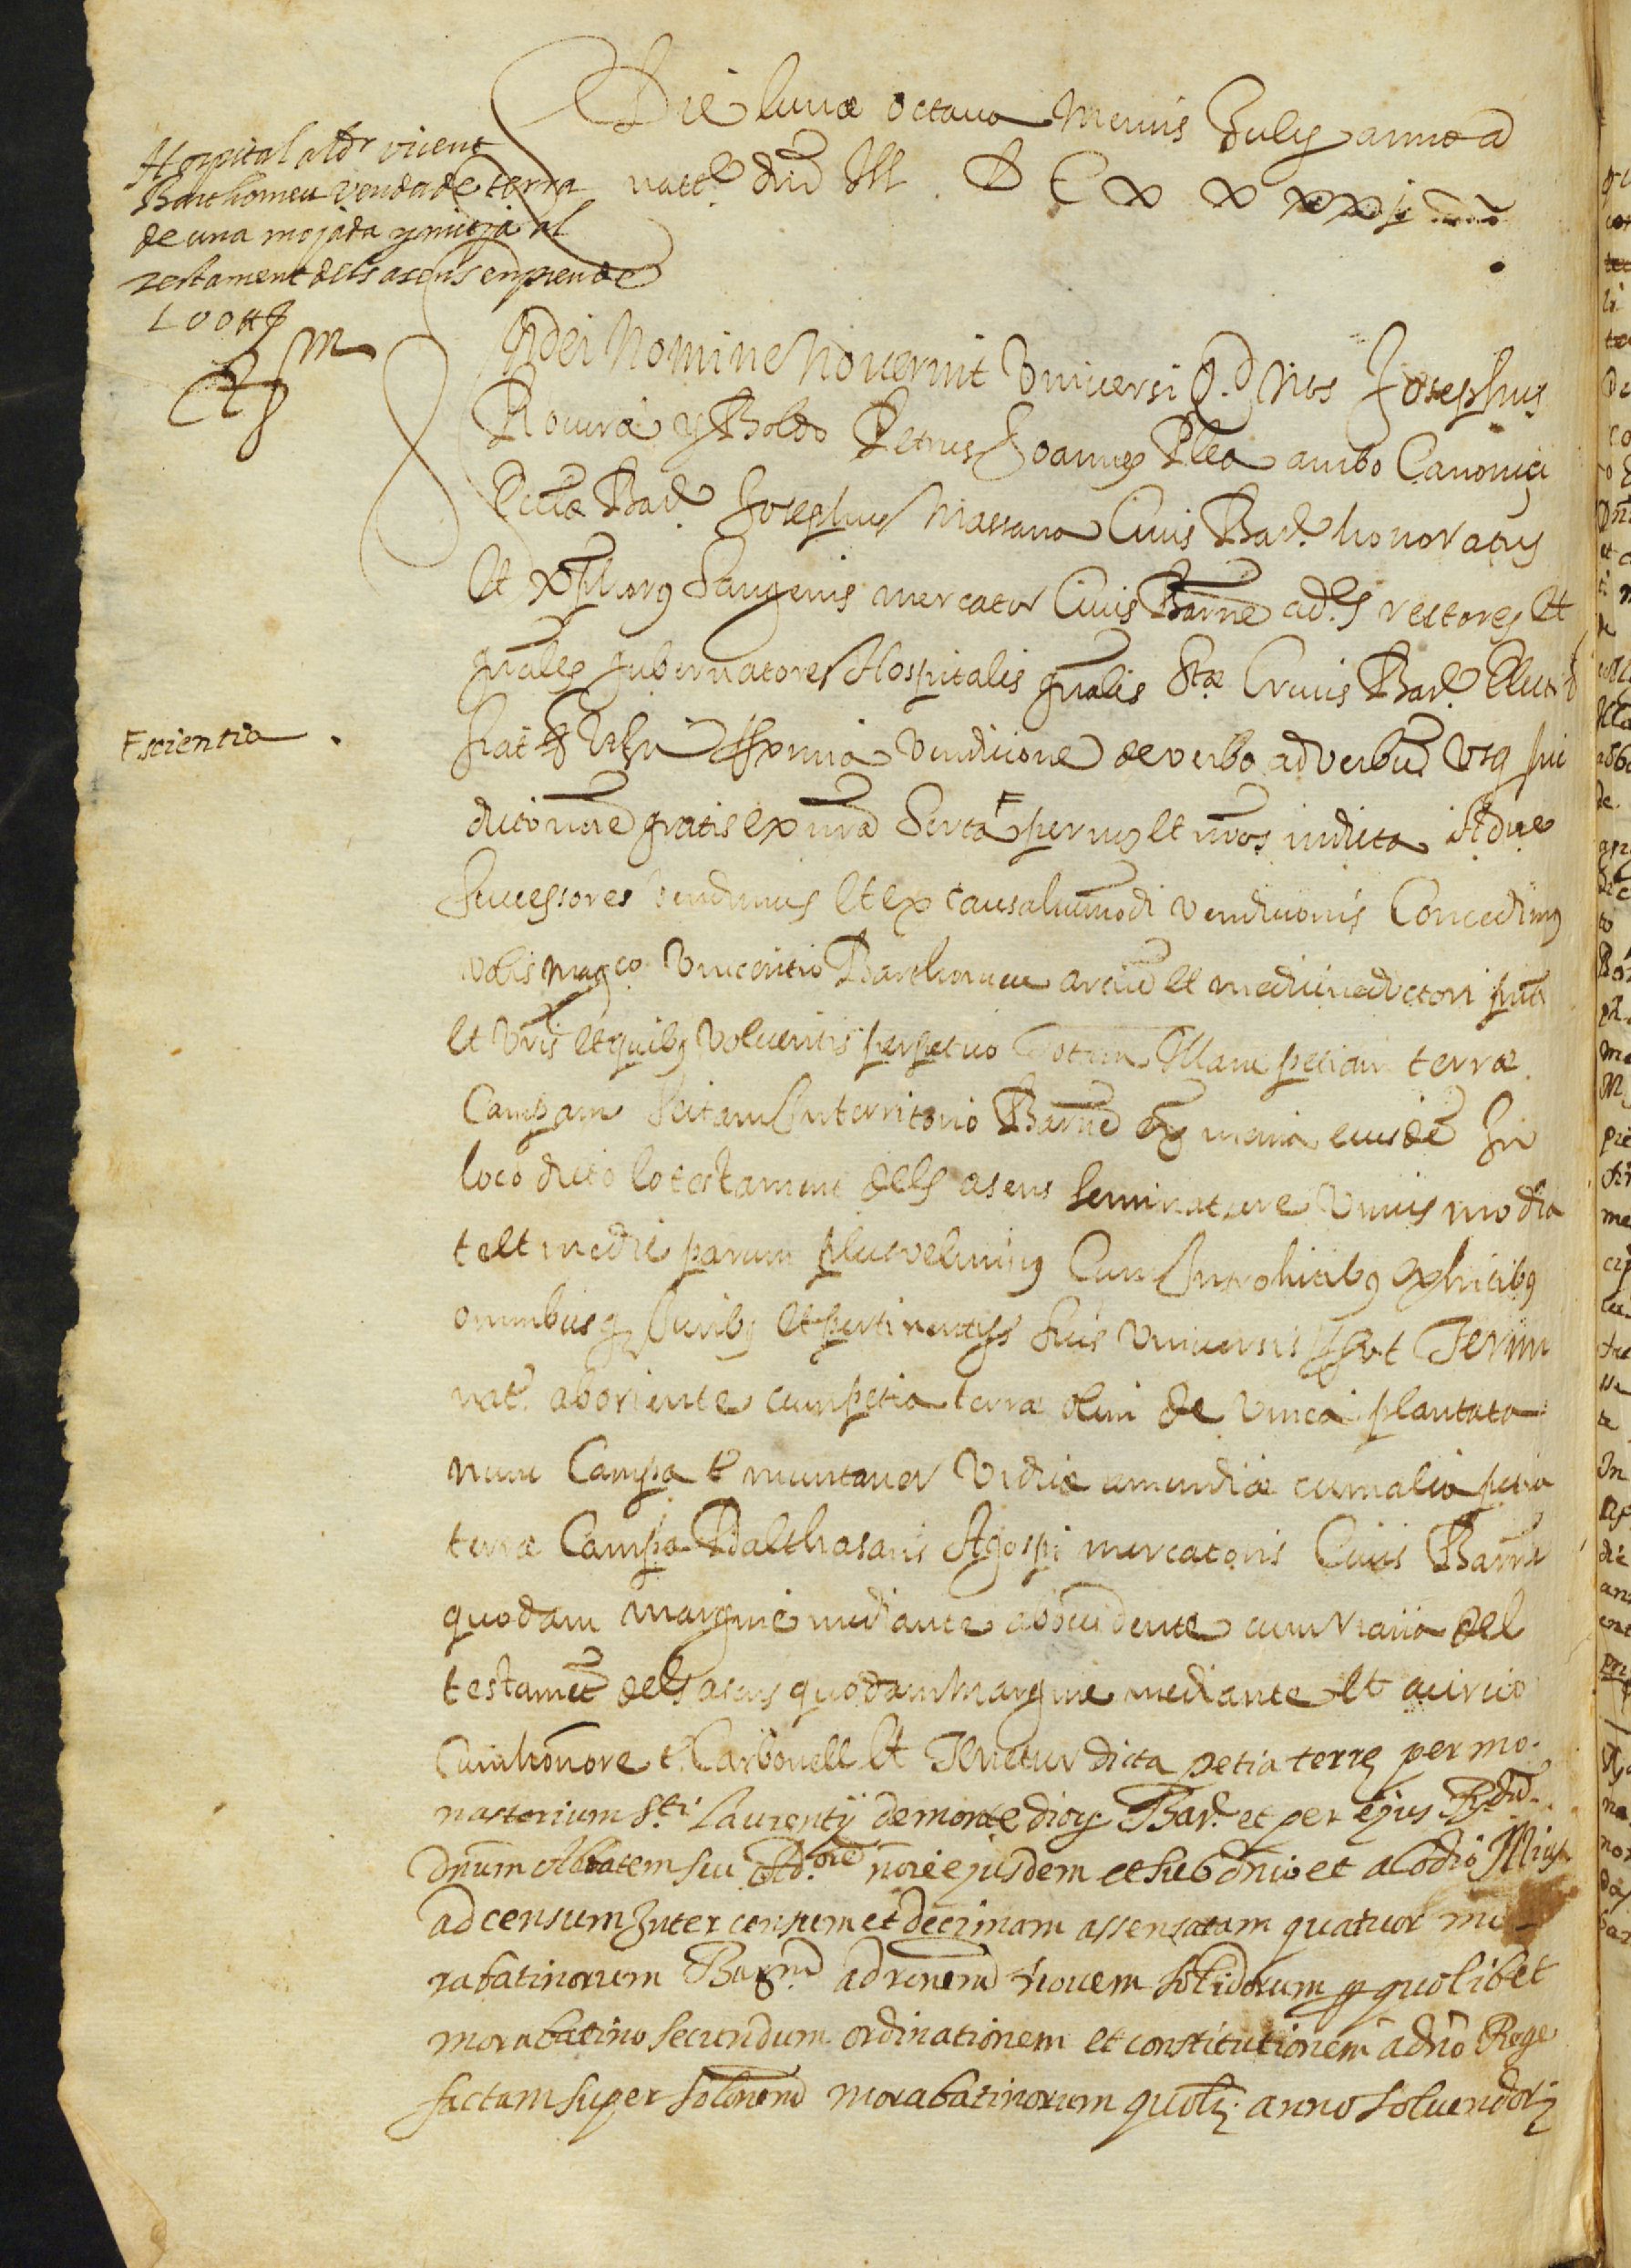 Die lunæ octava Mensis July anno a
natte dnī M. D C x x xxj
Hospital al dr vicent
Barthomeu venda de terra
de una mojada y mitja al
testament dels asens en preu de
100 ℔
In dei Nomine Noverint Universi Qd Nos Josephus
Rovira y Boldo Petrus Joannes Pla ambo Canonici
Ecctæ Bar. Josephus Massana Civis Bar. honoratus
Et xpophorus Sangenis mercator Civis Barne ad. rectores et
gnales gubernatores Hospitalis gnalis Stæ Crucis Bar.
fiat vendicione de verbo ad verbum usq
F scientia
dictō noie gratis ex nra Certa F per nos et nros in dicta
Successores vendimus Et ex causa hmoi vendicionis Concedimus
vobis magco Vincentio Barthomeu artiū et medicinæ doctori
et vris et quibus volueritis perpetuo Totam Illam petiam terræ
Campam sitam In territorio Barne ex mœnia eiusdē In
loco dicto lo testament dels asens seminature unius modia
te et medie parum plus vel minus Cum Introhitibus exhitibus
omnibusq Juribus et pertinentys suis universis Et Termi
nat. ab oriente cum petia terræ olim de vinea plantata
nunc Campa Viduæ a meridie cum alia petia
terræ Campa Balthasaris Agospi mercatoris Civis Barne
quodam margine mediante ab occidente cum via del
testamēt dels asens quodam margine mediante Et a circio
Cum honore t. Carbonell Et Tenetur dicta petia terre per mo-
nasterium Sti Laurentÿ de monte diocs Bar. et per ejus Rdū
Dnum Abbatem seu noie ejusdem et sub dnio et alodio Illius
ad censum Inter censum et decimam assensatam quatuor mo-
rabatinorum Barne ad rōnem novem solidorum p quolibet
morabatino secundum ordinationem et constitutionem a dno Rege
factam super solōnem morabatinorum quolt anno solvendor